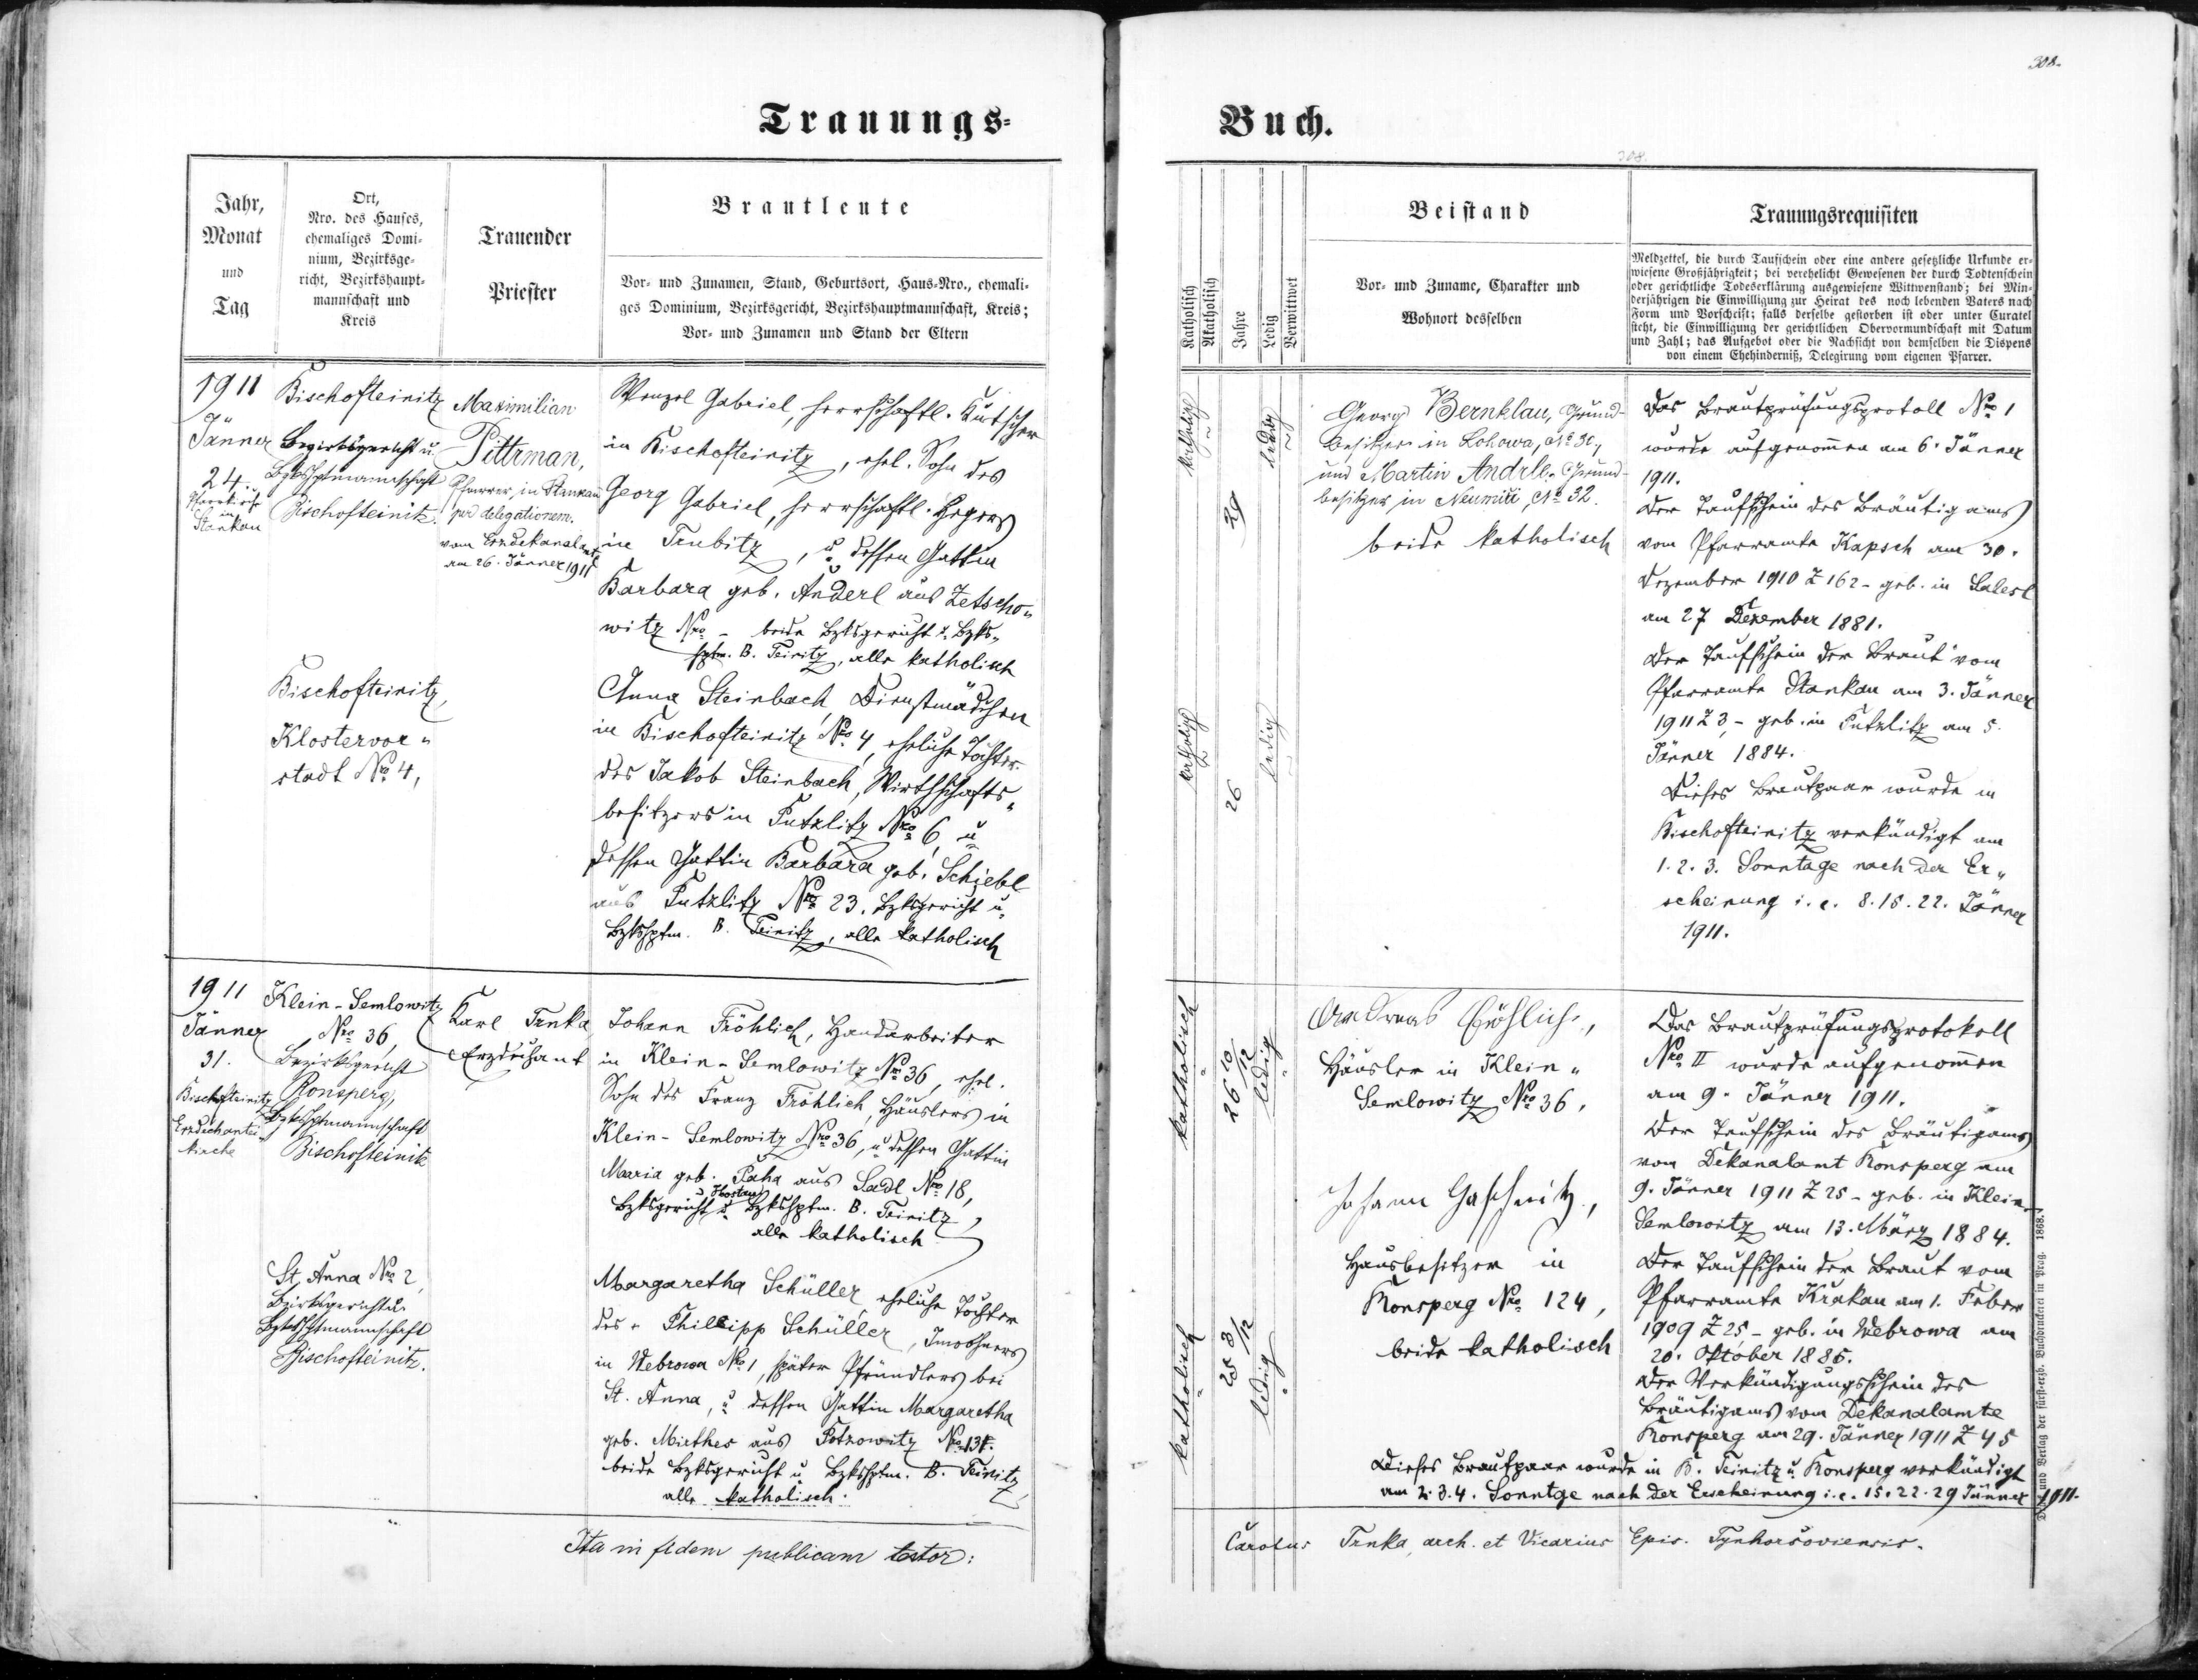 308.
Trauungs-
Buch.
308.
Jahr,
Monat
und
Tag
Ort,
Nro. des Hauses,
ehemaliges Domi-
nium, Bezirksge-
richt, Bezirkshaupt-
mannschaft und
Kreis
Trauender
Priester
Brautleute
Vor- und Zunamen, Stand, Geburtsort, Haus-Nro., ehemali-
ges Dominium, Bezirksgericht, Bezirkshauptmannschaft, Kreis;
Vor- und Zunamen und Stand der Eltern
Katholisch
Akatholisch
Jahre
Ledig
Verwittwet
Beistand
Vor- und Zuname, Charakter und
Wohnort desselben
Trauungsrequisiten
Meldzettel, die durch Taufschein oder eine andere gesetzliche Urkunde er-
wiesene Großjährigkeit; bei verehelicht Gewesenen der durch Todtenschein
oder gerichtliche Todeserklärung ausgewiesene Wittwenstand; bei Min-
derjährigen die Einwilligung zur Heirat des noch lebenden Vaters nach
Form und Vorschrift; falls derselbe gestorben ist oder unter Curatel
steht, die Einwilligung der gerichtlichen Obervormundschaft mit Datum
und Zahl; das Aufgebot oder die Nachsicht von demselben die Dispens
von einem Ehehinderniß, Delegirung vom eigenen Pfarrer.
1911
Jänner
24.
Pfarrkirche
in
Stankau
Bischofteinitz
Bezirksgericht u.
Bzkshptmannschaft
Bischofteinitz.
Maximilian
Pittrman,
Pfarrer, in Stankau
per delegationem.
vom Erzdekanalamte
am 26. Jänner 1911
Wenzel Gabriel, herrschaftl. Kutscher
in Bischofteinitz, ehel. Sohn des
Georg Gabriel, herrschaftl. Hegers
in Trubitz, u. dessen Gattin
Barbara geb. Anderl aus Zetscho-
witz Nro – beide Bzksgericht u. Bzks-
hptm. B. Teinitz, alle katholisch
Bischofteinitz,
Klostervor-
stadt Nro 4,
Anna Steinbach, Dienstmädchen
in Bischofteinitz Nro 4, eheliche Tochter
des Jakob Steinbach, Wirthschafts-
besitzers in Putzlitz Nro 6, u.
dessen Gattin Barbara geb. Schiebl
aus Putzlitz Nro 23, Bzksgericht u.
Bzkshptm. B. Teinitz, alle katholisch
katholisch
29
ledig
katholisch
26
ledig
Georg Bernklau, Grund-
besitzer in Lohowa, No 30,
und Martin Andrle, Grund-
besitzer in Neumiř, No 32.
beide katholisch
Das Brautprüfungsprotoll Nro 1
wurde aufgenommen am 6. Jänner
1911.
Der Taufschein des Bräutigams
vom Pfarramte Kapsch am 30.
Dezember 1910 Z 162 – geb. in Salesl
am 27 Dezember 1881.
Der Taufschein der Braut vom
Pfarramte Stankau am 3. Jänner
1911 Z 3, – geb. in Putzlitz am 5.
Jänner 1884.
Dieses Brautpaar wurde in
Bischofteinitz verkündigt am
1. 2. 3. Sonntage nach der Er-
scheinung i. e. 8. 15. 22. Jänner
1911.
1911
Jänner
31.
Bischofteinitz
Erzdechantei-
kirche
Klein-Semlowitz
Nro 36,
Bezirksgericht
Ronsperg,
Bzkshptmannschaft
Bischofteinitz
Karl Trnka,
Erzdechant
Johann Fröhlich, Handarbeiter
in Klein-Semlowitz Nro 36, ehel.
Sohn des Franz Fröhlich, Häuslers in
Klein-Semlowitz Nro 36, u. dessen Gattin
Maria geb. Paha aus Sadl Nro 18,
u. Hostau
Bzksgericht u. Bzkshptm. B. Teinitz,
alle katholisch
St. Anna Nro 2,
Bzirksgericht u.
Bzkshptmannschaft
Bischofteinitz.
Margaretha Schüller, eheliche Tochter
des Phillipp Schüller, Inwohners
in Webrowa No 1, später Pfründlers bei
St. Anna, u. dessen Gattin Margaretha
geb. Mirthes aus Potzowitz No 13.
beide Bzksgericht u. Bzkshptm. B. Teinitz,
alle katholisch.
katholisch
26 10/12
ledig
katholisch
25 3/12
ledig
Andreas Fröhlich,
Häusler in Klein-
Semlowitz Nro 36,
Johann Gaschnitz,
Hausbesitzer in
Ronsperg Nro 124,
beide katholisch
Das Brautprüfungsprotokoll
Nro II wurde aufgenommen
am 9. Jänner 1911.
Der Taufschein des Bräutigams
vom Dekanalamt Ronsperg am
9. Jänner 1911 Z 25 – geb. in Klein-
Semlowitz am 13. März 1884.
Der Taufschein der Braut vom
Pfarramte Krakau am 1. Feber
1909 Z 25, – geb. in Webrowa am
20. Oktober 1885.
Der Verkündigungsschein des
Bräutigams vom Dekanalamte
Ronsperg am 29. Jänner 1911 Z 45
Dieses Brautpaar wurde in B. Teinitz u. Ronsperg verkündigt
am 2. 3. 4. Sonntge nach der Erscheinung i. e. 15. 22. 29 Jänner 1911.
Ita in fidem publicam testor:
Carolus Trnka, arch. et Vicarius Epis. Tynhoršoviensis.
Druck und Verlag der fürst-erzb. Buchdruckerei in Prag. 1868.